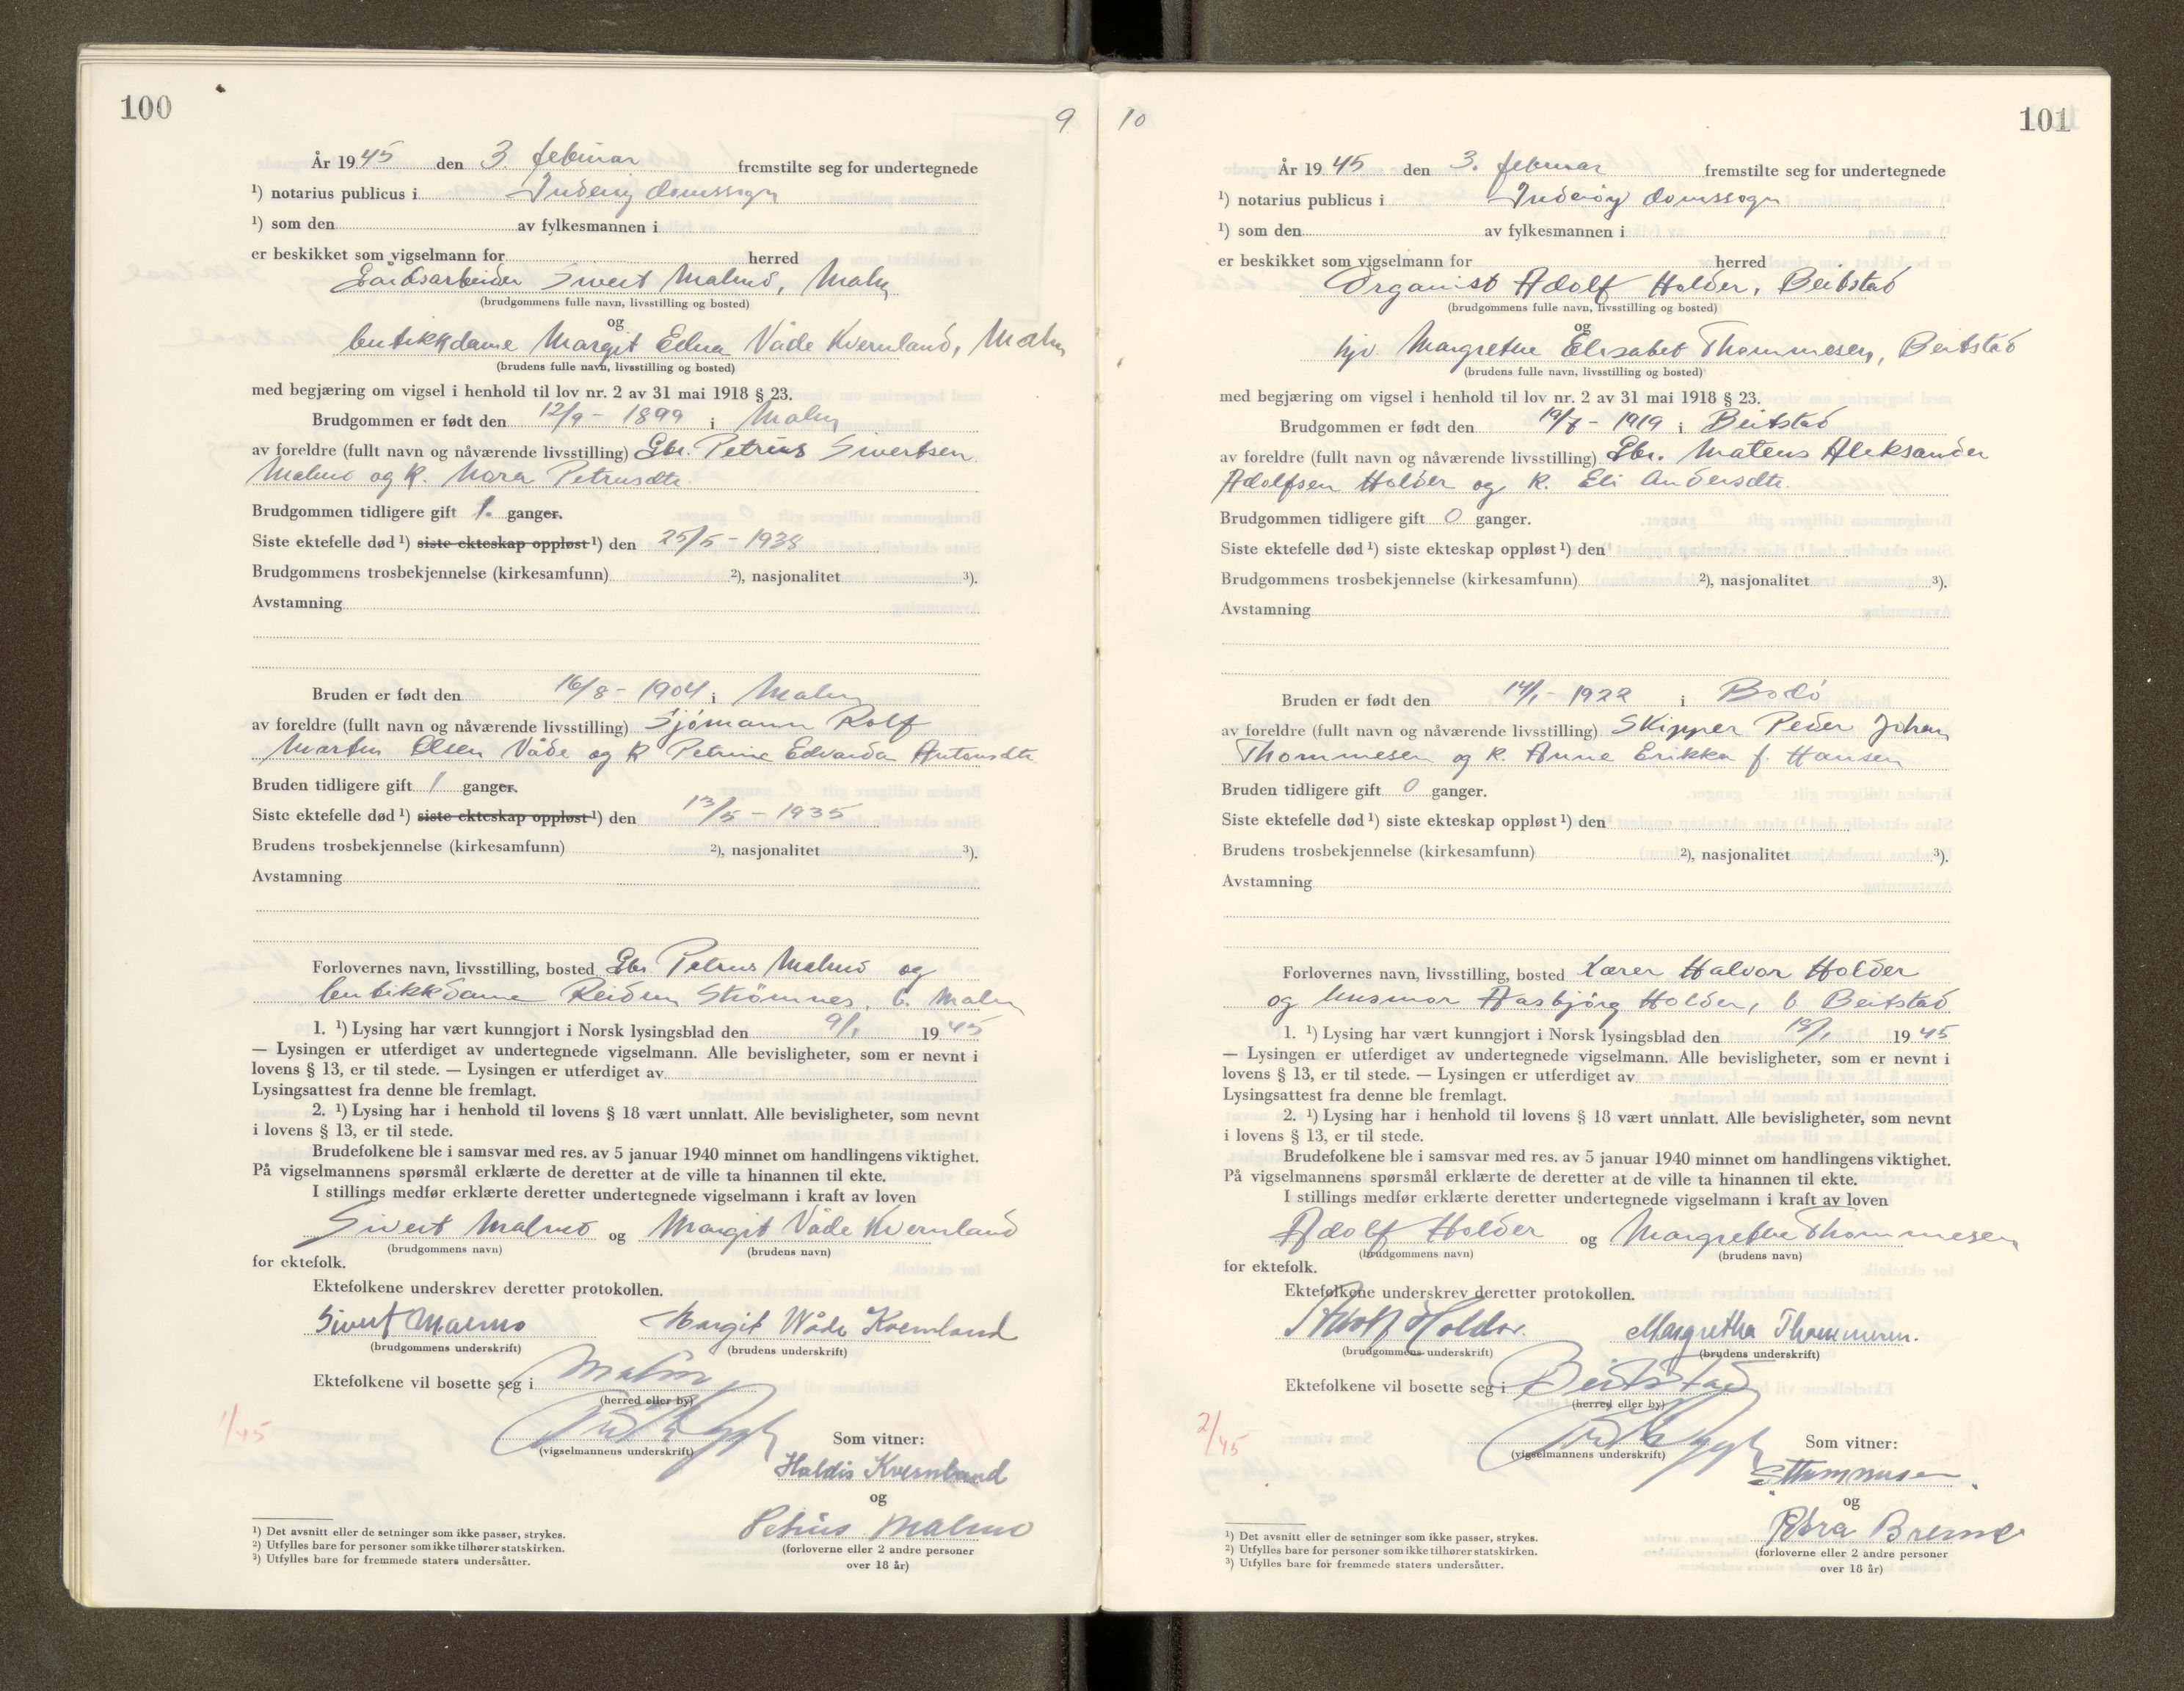 100
9
År 1945 den 3. februar fremstilte seg for undertegnede
¹) notarius publicus i Inderøy domssogn
¹) som den av fylkesmannen i
er beskikket som vigselmann for herred
Gårdsarbeider Sivert Malmo, Malm
(brudgommens fulle navn, livsstilling og bosted)
og
butikkdame Margit Edna Våde Kvernland, Malm
(brudens fulle navn, livsstilling og bosted)
med begjæring om vigsel i henhold til lov nr. 2 av 31 mai 1918 § 23.
Brudgommen er født den 12/9 - 1899 i Malm
av foreldre (fullt navn og nåværende livsstilling) Gbr. Petrus Sivertsen
Malmo og k. Nora Petrusdtr.
Brudgommen tidligere gift 1. ganger.
Siste ektefelle død ¹) siste ekteskap oppløst ¹) den 25/5 - 1938
Brudgommens trosbekjennelse (kirkesamfunn) ²), nasjonalitet ³).
Avstamning
Bruden er født den 16/8 - 1904 i Malm
av foreldre (fullt navn og nåværende livsstilling) Sjömann Rolf
Martin Olsen Våde og k Petrine Edvarda Antonsdtr
Bruden tidligere gift 1 ganger.
Siste ektefelle død ¹) siste ekteskap oppløst ¹) den 13/5 - 1935
Brudens trosbekjennelse (kirkesamfunn) ²), nasjonalitet ³).
Avstamning
Forlovernes navn, livsstilling, bosted Gbr Petrus Malmo og
butikkdame Reidun Strömnes, b. Malm
1. ¹) Lysing har vært kunngjort i Norsk lysingsblad den 9/1 1945
— Lysingen er utferdiget av undertegnede vigselmann. Alle bevisligheter, som er nevnt i
lovens § 13, er til stede. — Lysingen er utferdiget av
Lysingsattest fra denne ble fremlagt.
2. ¹) Lysing har i henhold til lovens § 18 vært unnlatt. Alle bevisligheter, som nevnt
i lovens § 13, er til stede.
Brudefolkene ble i samsvar med res. av 5 januar 1940 minnet om handlingens viktighet.
På vigselmannens spørsmål erklærte de deretter at de ville ta hinannen til ekte.
I stillings medfør erklærte deretter undertegnede vigselmann i kraft av loven
Sivert Malmo og Margit Våde Kvernland
(brudgommens navn) (brudens navn)
for ektefolk.
Ektefolkene underskrev deretter protokollen.
Sivert Malmo Margit Wåde Kvernland
(brudgommens underskrift) (brudens underskrift)
Ektefolkene vil bosette seg i Malm
(herred eller by)
1/45
(vigselmannens underskrift)
Som vitner:
Haldis Kvernland
og
Petrus Malmo
(forloverne eller 2 andre personer
over 18 år)
¹) Det avsnitt eller de setninger som ikke passer, strykes.
²) Utfylles bare for personer som ikke tilhører statskirken.
³) Utfylles bare for fremmede staters undersåtter.
10
101
År 1945 den 3. februar fremstilte seg for undertegnede
¹) notarius publicus i Inderöy domssogn
¹) som den av fylkesmannen i
er beskikket som vigselmann for herred
Organist Adolf Holder, Beitstad
(brudgommens fulle navn, livsstilling og bosted)
og
hjv. Margrethe Elisabet Thommesen, Beitstad
(brudens fulle navn, livsstilling og bosted)
med begjæring om vigsel i henhold til lov nr. 2 av 31 mai 1918 § 23.
Brudgommen er født den 19/7 - 1919 i Beitstad
av foreldre (fullt navn og nåværende livsstilling) Gbr. Mateus Aleksander
Adolfsen Holder og k. Eli Andersdtr.
Brudgommen tidligere gift 0 ganger.
Siste ektefelle død ¹) siste ekteskap oppløst ¹) den
Brudgommens trosbekjennelse (kirkesamfunn) ²), nasjonalitet ³).
Avstamning
Bruden er født den 14/1 - 1922 i Bodö
av foreldre (fullt navn og nåværende livsstilling) Skipper Peder Johan
Thommesen og k. Anne Erikka f. Hansen
Bruden tidligere gift 0 ganger.
Siste ektefelle død ¹) siste ekteskap oppløst ¹) den
Brudens trosbekjennelse (kirkesamfunn) ²), nasjonalitet ³).
Avstamning
Forlovernes navn, livsstilling, bosted Lærer Halvor Holder
og husmor Aasbjörg Holder, b Beitstad
1. ¹) Lysing har vært kunngjort i Norsk lysingsblad den 1945
— Lysingen er utferdiget av undertegnede vigselmann. Alle bevisligheter, som er nevnt i
lovens § 13, er til stede. — Lysingen er utferdiget av
Lysingsattest fra denne ble fremlagt.
2. ¹) Lysing har i henhold til lovens § 18 vært unnlatt. Alle bevisligheter, som nevnt
i lovens § 13, er til stede.
Brudefolkene ble i samsvar med res. av 5 januar 1940 minnet om handlingens viktighet.
På vigselmannens spørsmål erklærte de deretter at de ville ta hinannen til ekte.
I stillings medfør erklærte deretter undertegnede vigselmann i kraft av loven
Adolf Holder og Margrethe Thommesen
(brudgommens navn) (brudens navn)
for ektefolk.
Ektefolkene underskrev deretter protokollen.
Adolf Holder. Margretha Thommesen.
(brudgommens underskrift) (brudens underskrift)
Ektefolkene vil bosette seg i Beitstad
(herred eller by)
2/45
(vigselmannens underskrift)
Som vitner:
Thommesen
og
(forloverne eller 2 andre personer
over 18 år)
¹) Det avsnitt eller de setninger som ikke passer, strykes.
²) Utfylles bare for personer som ikke tilhører statskirken.
³) Utfylles bare for fremmede staters undersåtter.